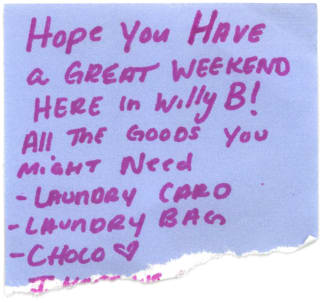 Hope You HAVE
a GREAT WEEKEND
HERE in Willy B!
All THE GOODS You
MIGHT Need
- LAUNDRY CARD
- LAUNDRY BAG
- CHOCO ♡
I